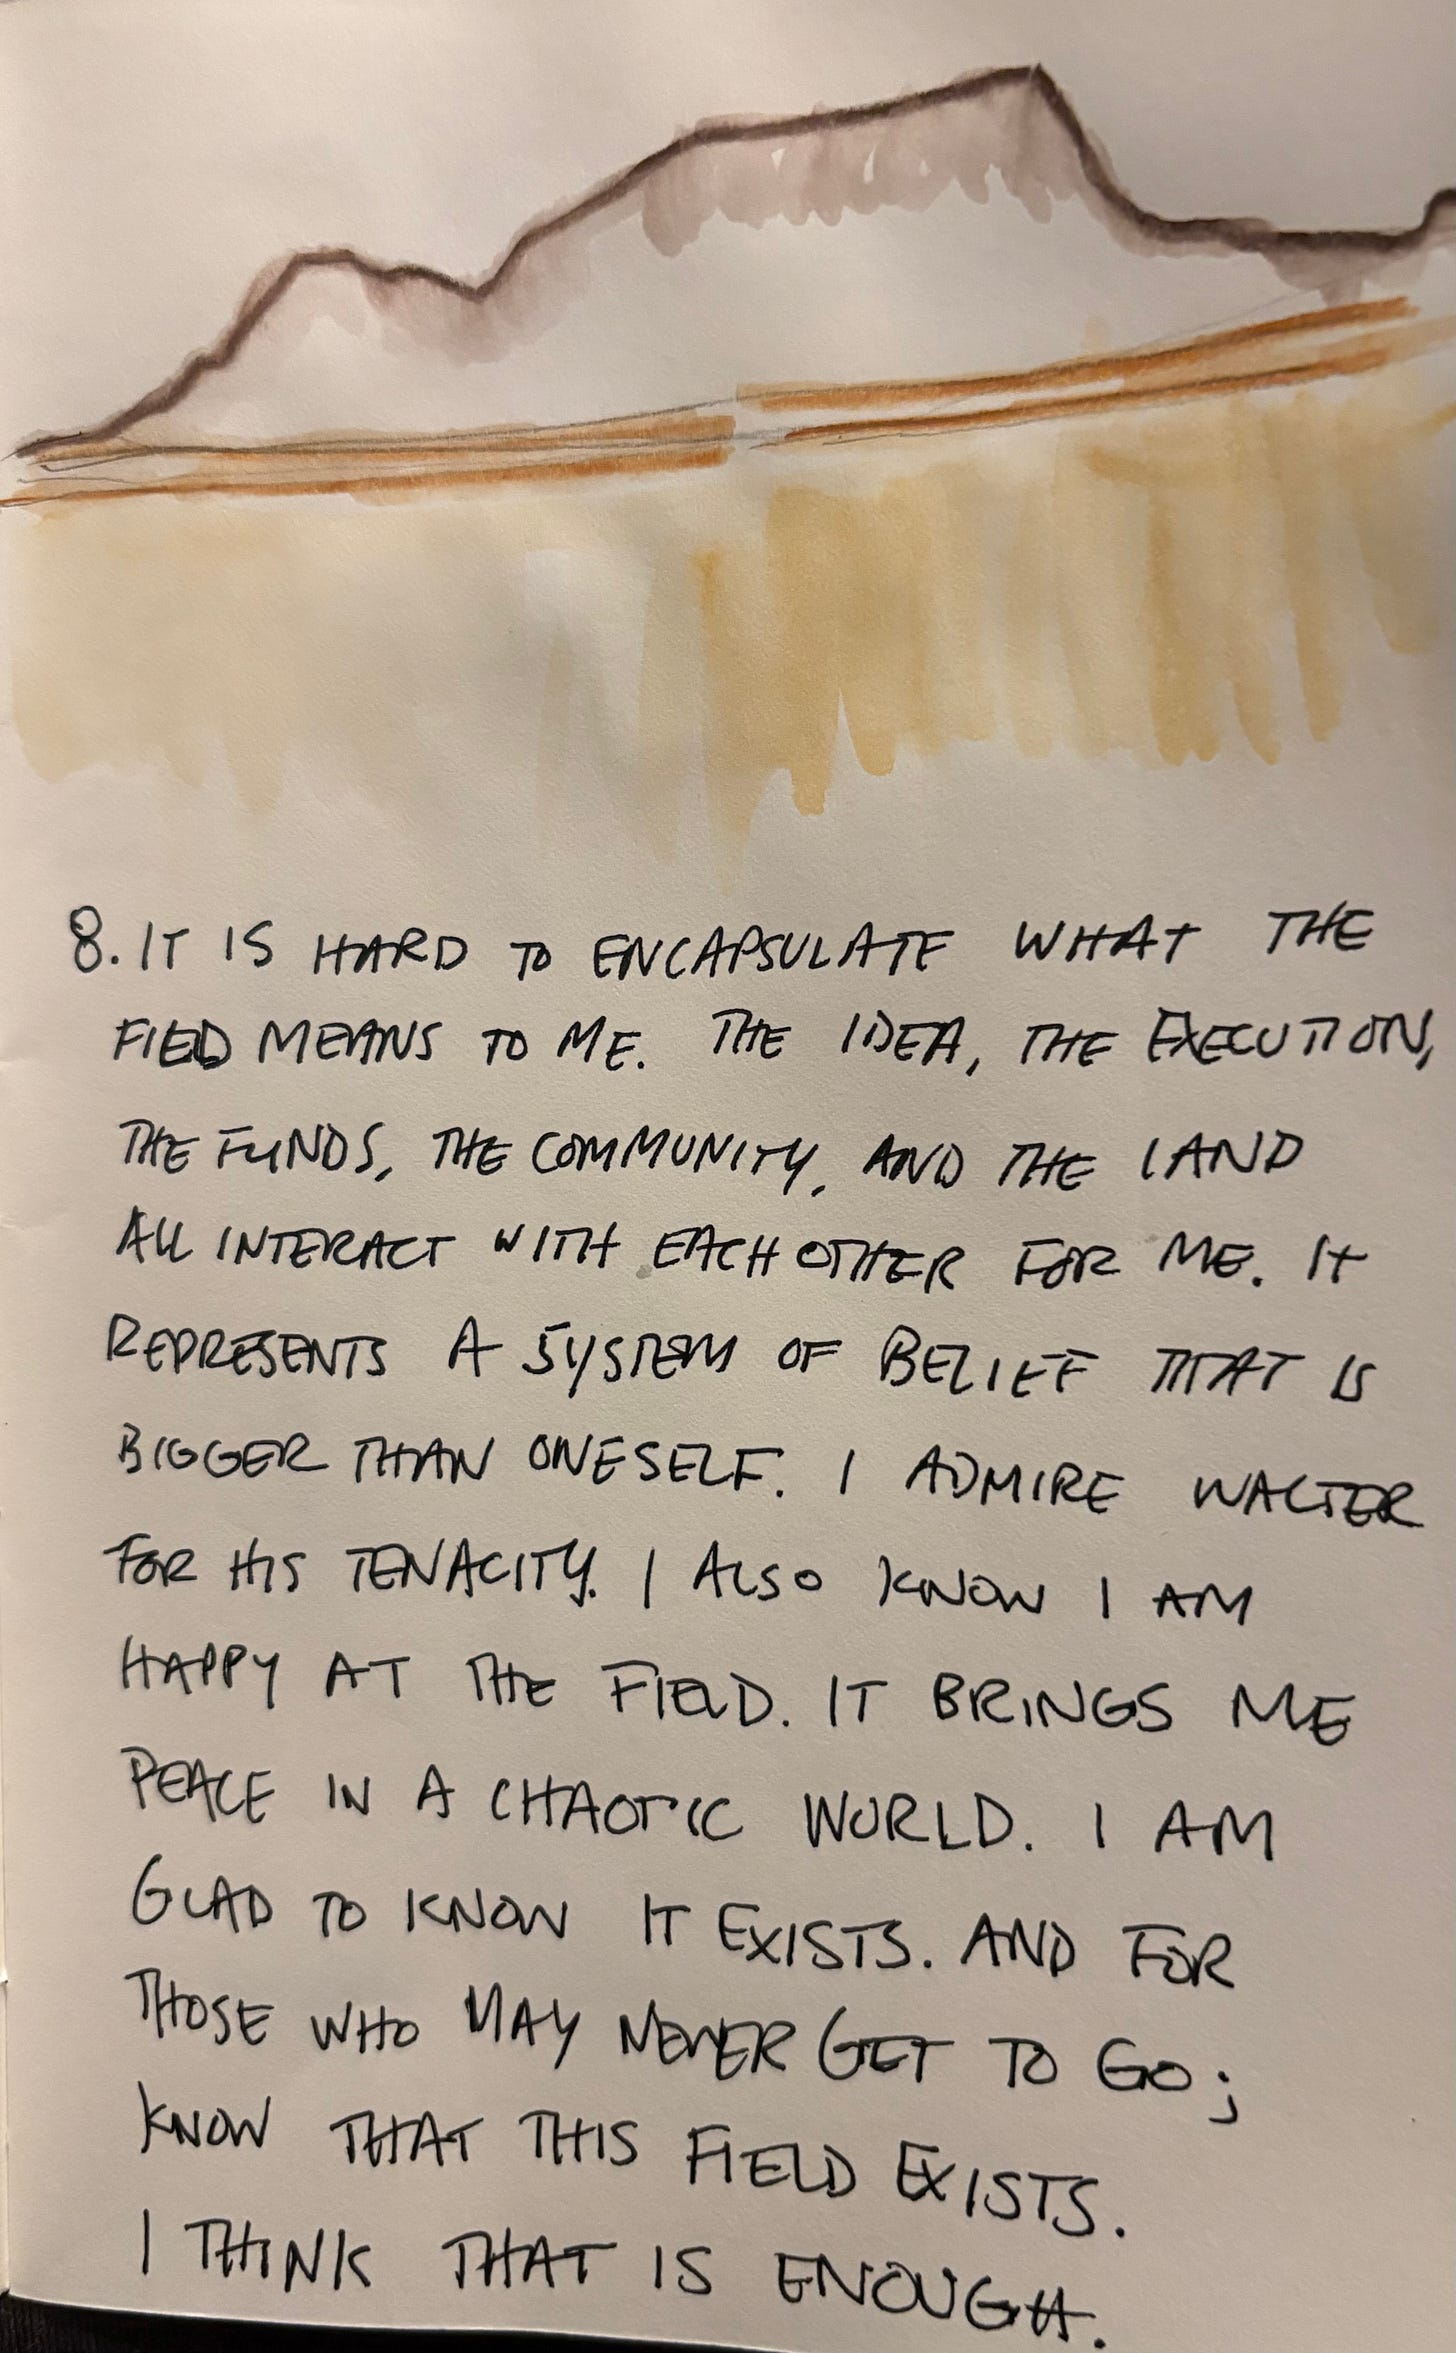 8. IT IS HARD TO ENCAPSULATE WHAT THE
FIELD MEANS TO ME. THE IDEA, THE EXECUTION,
THE FUNDS, THE COMMUNITY, AND THE LAND
ALL INTERACT WITH EACH OTHER FOR ME. IT
REPRESENTS A SYSTEM OF BELIEF THAT IS
BIGGER THAN ONESELF. I ADMIRE WALTER
FOR HIS TENACITY. I ALSO KNOW I AM
HAPPY AT THE FIELD. IT BRINGS ME
PEACE IN A CHAOTIC WORLD. I AM
GLAD TO KNOW IT EXISTS. AND FOR
THOSE WHO MAY NEVER GET TO GO;
KNOW THAT THIS FIELD EXISTS.
I THINK THAT IS ENOUGH.